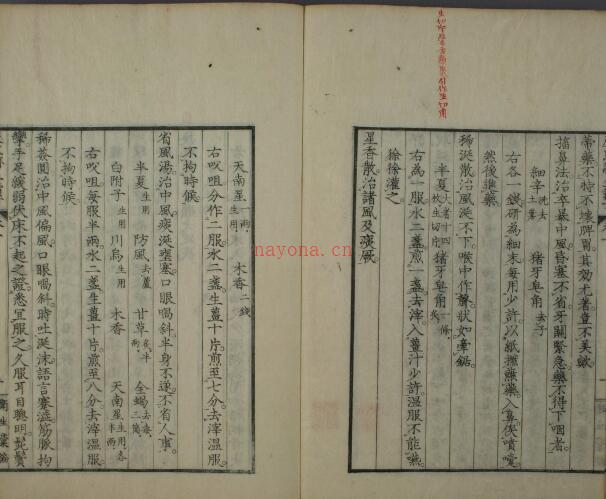 蒂藥不特不壞脾胃其効尤著豈不美哉
搐鼻法治卒暴中風昏塞不省牙關緊急藥不得下咽者
細辛洗去土葉 猪牙皂角去子
右各一錢研為細末每用少許以紙撚蘸藥入鼻俟噴嚏
然後進藥
稀涎散治風涎不下喉中作聲狀如牽鋸
半夏大者十四枚生切片 猪牙皂角一條炙
右為一服水二盞煎一盞去滓入薑汁少許温服不能嚥
徐徐灌之
星香散治諸風及痰風
天南星一兩生用 木香二錢
右㕮咀分作二服水二盞生薑十片煎至七分去滓温服
不拘時候
省風湯治中風痰涎壅塞口眼喎斜半身不遂不省人事
半夏生用 防風去蘆 甘草炙半兩 全蝎去毒二箇
白附子生用 川烏生用 木香 天南星生用各半兩
右㕮咀每服半兩水二盞生薑十片煎至八分去滓温服
不拘時候
稀薟圓治中風偏風口眼喎斜時吐涎沫語言蹇澁筋脈拘
攣手足緩弱伏床不起之證悉宜服之久服耳目聰明髭鬢
衛生彙編
nayona.cn